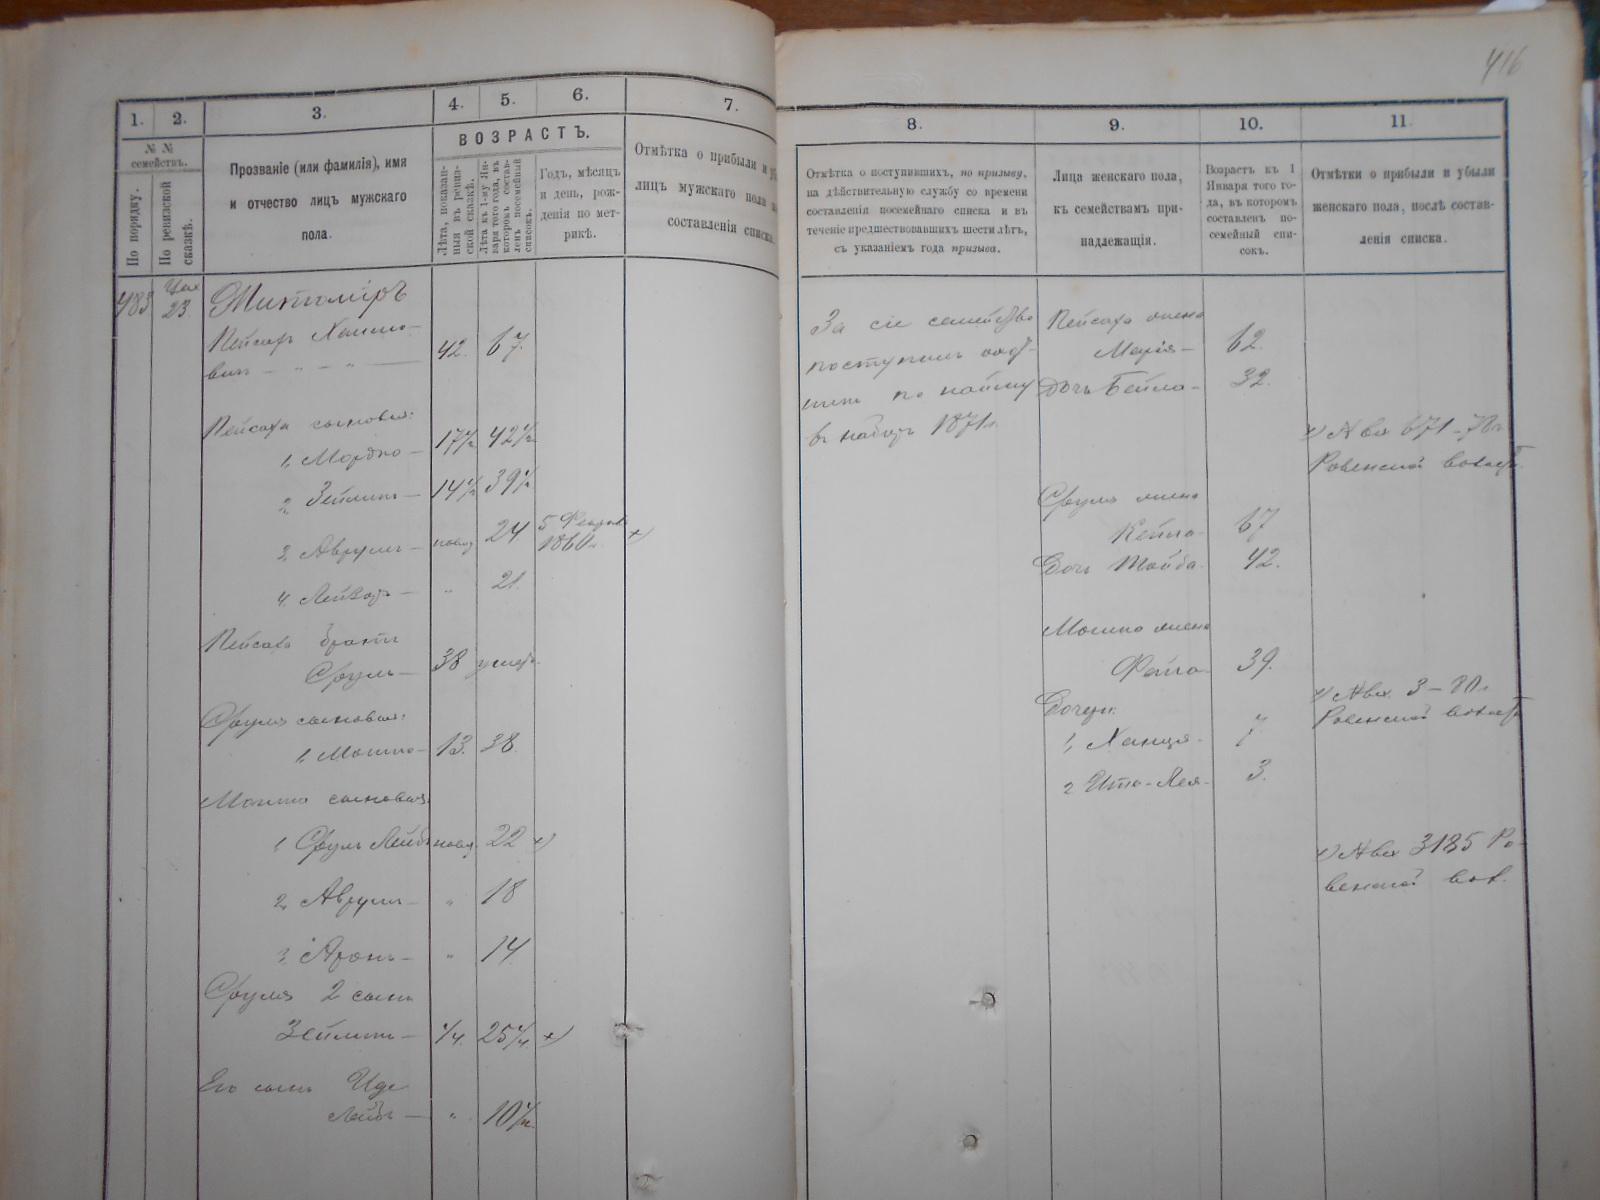 416
1.
2.
3.
4.
5.
6.
7.
8.
9.
10.
11.
№ №
семействъ.
По порядку.
По ревизской
сказкѣ.
Прозваніе (или фамилія), имя
и отчество лицъ мужскаго
пола.
ВОЗРАСТЪ.
Лѣта, показан-
ныя въ ревиз-
ской сказкѣ.
Лѣта къ 1-му Ян-
варя того года, въ
которомъ состав-
ленъ посемейный
списокъ.
Годъ, мѣсяцъ
и день, рож-
денія по мет-
рикѣ.
Отмѣтка о прибыли и уб
лицъ мужскаго пола
составленія списка.
Отмѣтка о поступившихъ, по призыву,
на дѣйствительную службу со времени
составленія посемейнаго списка и въ
теченіе предшествовавшихъ шести лѣтъ,
съ указаніемъ года призыва.
Лица женскаго пола,
къ семействамъ при-
надлежащія.
Возрастъ къ 1
Января того го-
да, въ которомъ
составленъ по-
семейный спи-
сокъ.
Отмѣтки о прибыли и убыли
женскаго пола, послѣ состав-
ленія списка.
483 23. Житоміръ
Пейсахъ
вич 42. 67.
Пейсаха сыновья:
1, Мордко 17½ 42½
2, Зейликъ 14½ 39½
3, Аврумъ 24 5 Февр 1860 г. ×)
4, " 21.
Пейсаха братъ
Сруль 38 умеръ
Сруля сыновья:
1, Мошко 13. 38.
Мошка сыновья:
1 Сруль Лейбъ новор 22 ×)
2, Аврумъ " 18
3, Аронъ " 14
Сруля 2 сынъ
Зейликъ ¼ 25¼ ×)
Его сынъ Иде
Лейбъ " 10½
За сіе семейство
поступилъ
по найму
въ наборъ 1871 г.
Пейсаха жена
Марія 62.
Дочь Бейла 32.
Сруля жена
Кейла 67
Дочь Тойба 42.
Мошка жена
Фейга 39.
Дочери:
1, Ханця 7
2 Ита-Лея 3.
×) 671
Ровенской
×) 3
Ровенской
×) 3185 Ро-
венской